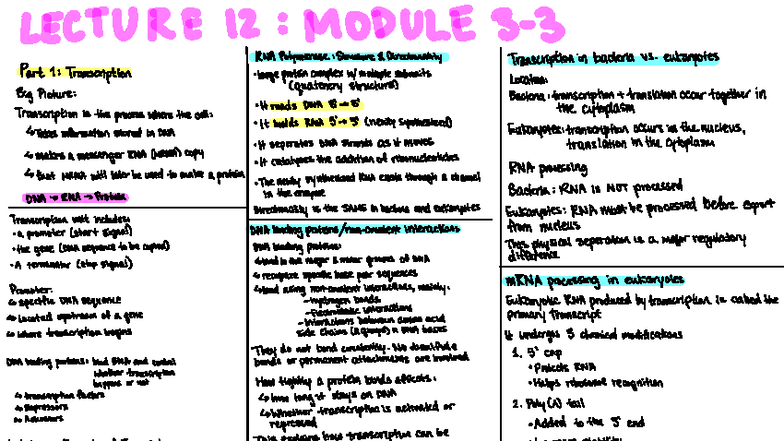 LECTURE 12 : MODULE 3-3
Part 1: Transcription
Big Picture:
Transcription is the process where the cell:
↳ Takes information stored in DNA
↳ makes a messenger RNA (mRNA) copy
↳ that mRNA will later be used to make a protein
DNA → RNA → Protein
Transcription unit includes:
• a promoter (start signal)
• the gene (DNA sequence to be copied)
• A terminator (stop signal)
Promoter:
↳ specific DNA sequence
↳ Located upstream of a gene
↳ where transcription begins
DNA binding proteins: bind DNA and control
whether transcription
happens or not
↳ transcription factors
↳ Repressors
↳ Activators
RNA Polymerase: Structure & Directionality
• large protein complex w/ multiple subunits
(Quaternary Structure)
• It reads DNA 3'→5'
• It builds RNA 5'→3' (newly synthesized)
• It separates DNA strands as it moves
• It catalyzes the addition of ribonucleotides
• The newly synthesized RNA exits through a channel
in the enzyme
Directionality is the SAME in bacteria and eukaryotes
DNA binding proteins/non-covalent interactions
DNA binding proteins:
↳ bind in the major & minor grooves of DNA
↳ recognize specific base pair sequences
↳ bind using non-covalent interactions, mainly:
- Hydrogen bonds
- Electrostatic interactions
- Interactions between amino acid
side chains (R groups) & DNA bases
They do not bond covalently. No
bonds or permanent attachments are involved
How tightly a protein binds affects:
↳ how long it stays on DNA
↳ Whether transcription is activated or
repressed
This explains how transcription can be
Transcription in bacteria vs. eukaryotes
Location:
Bacteria: transcription + translation occur together in
the cytoplasm
Eukaryotes: transcription occurs in the nucleus,
translation in the cytoplasm
RNA processing
Bacteria: RNA is NOT processed
Eukaryotes: RNA must be processed before export
from nucleus
This physical seperation is a major regulatory
difference
mRNA processing in eukaryotes
Eukaryotic RNA produced by transcription is called the
primary transcript
It undergoes 3 chemical modifications
1. 5' cap
• Protects RNA
• Helps ribosome recognition
2. Poly(A) tail
• Added to the 3' end